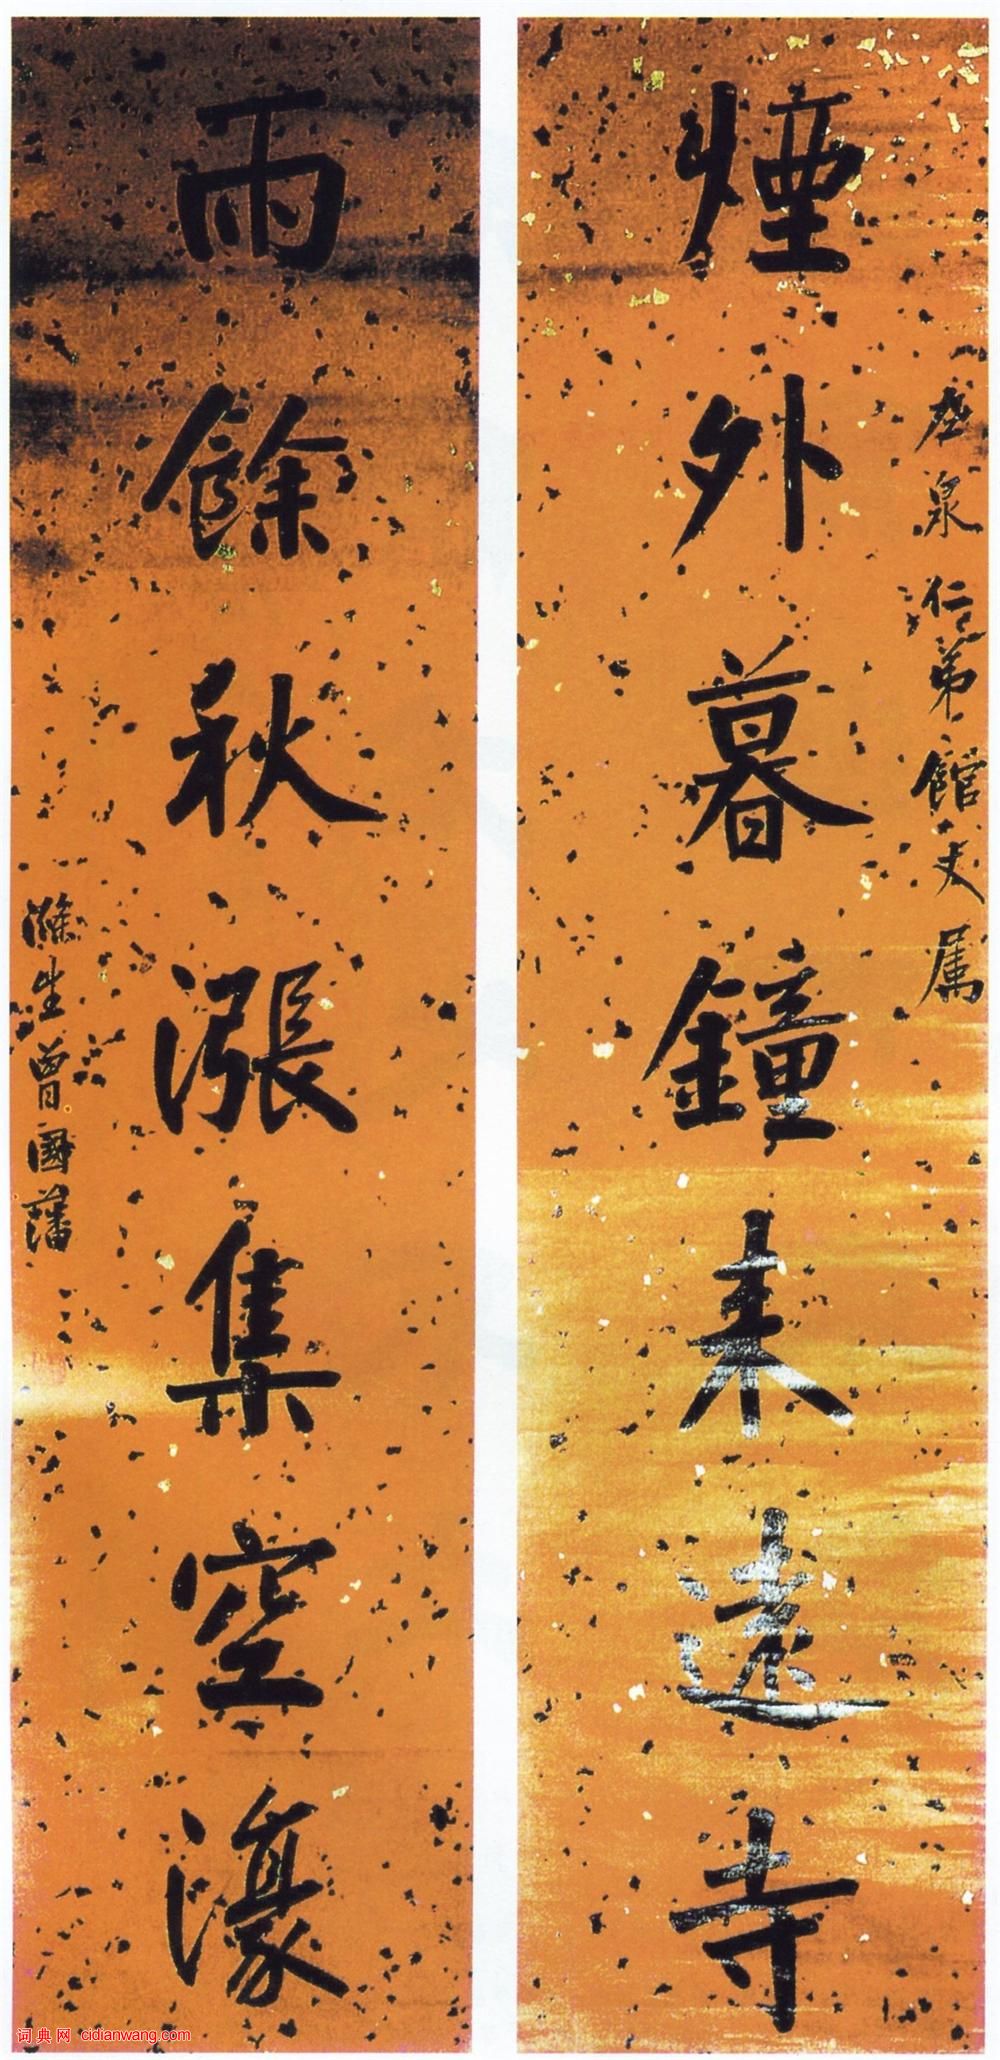 煙外暮鐘来遠寺
泉仁弟館丈属
雨餘秋漲集空濠
滌生曾國藩
词典网 cidianwang.com